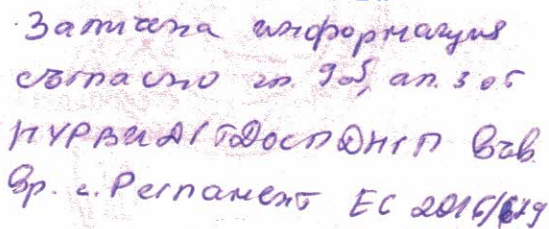 Заличена информация
съгласно чл. 9об, ал. 3 от
ПУРВИДГТДОСПДНГП във
вр. с Регламент ЕС 2016/679